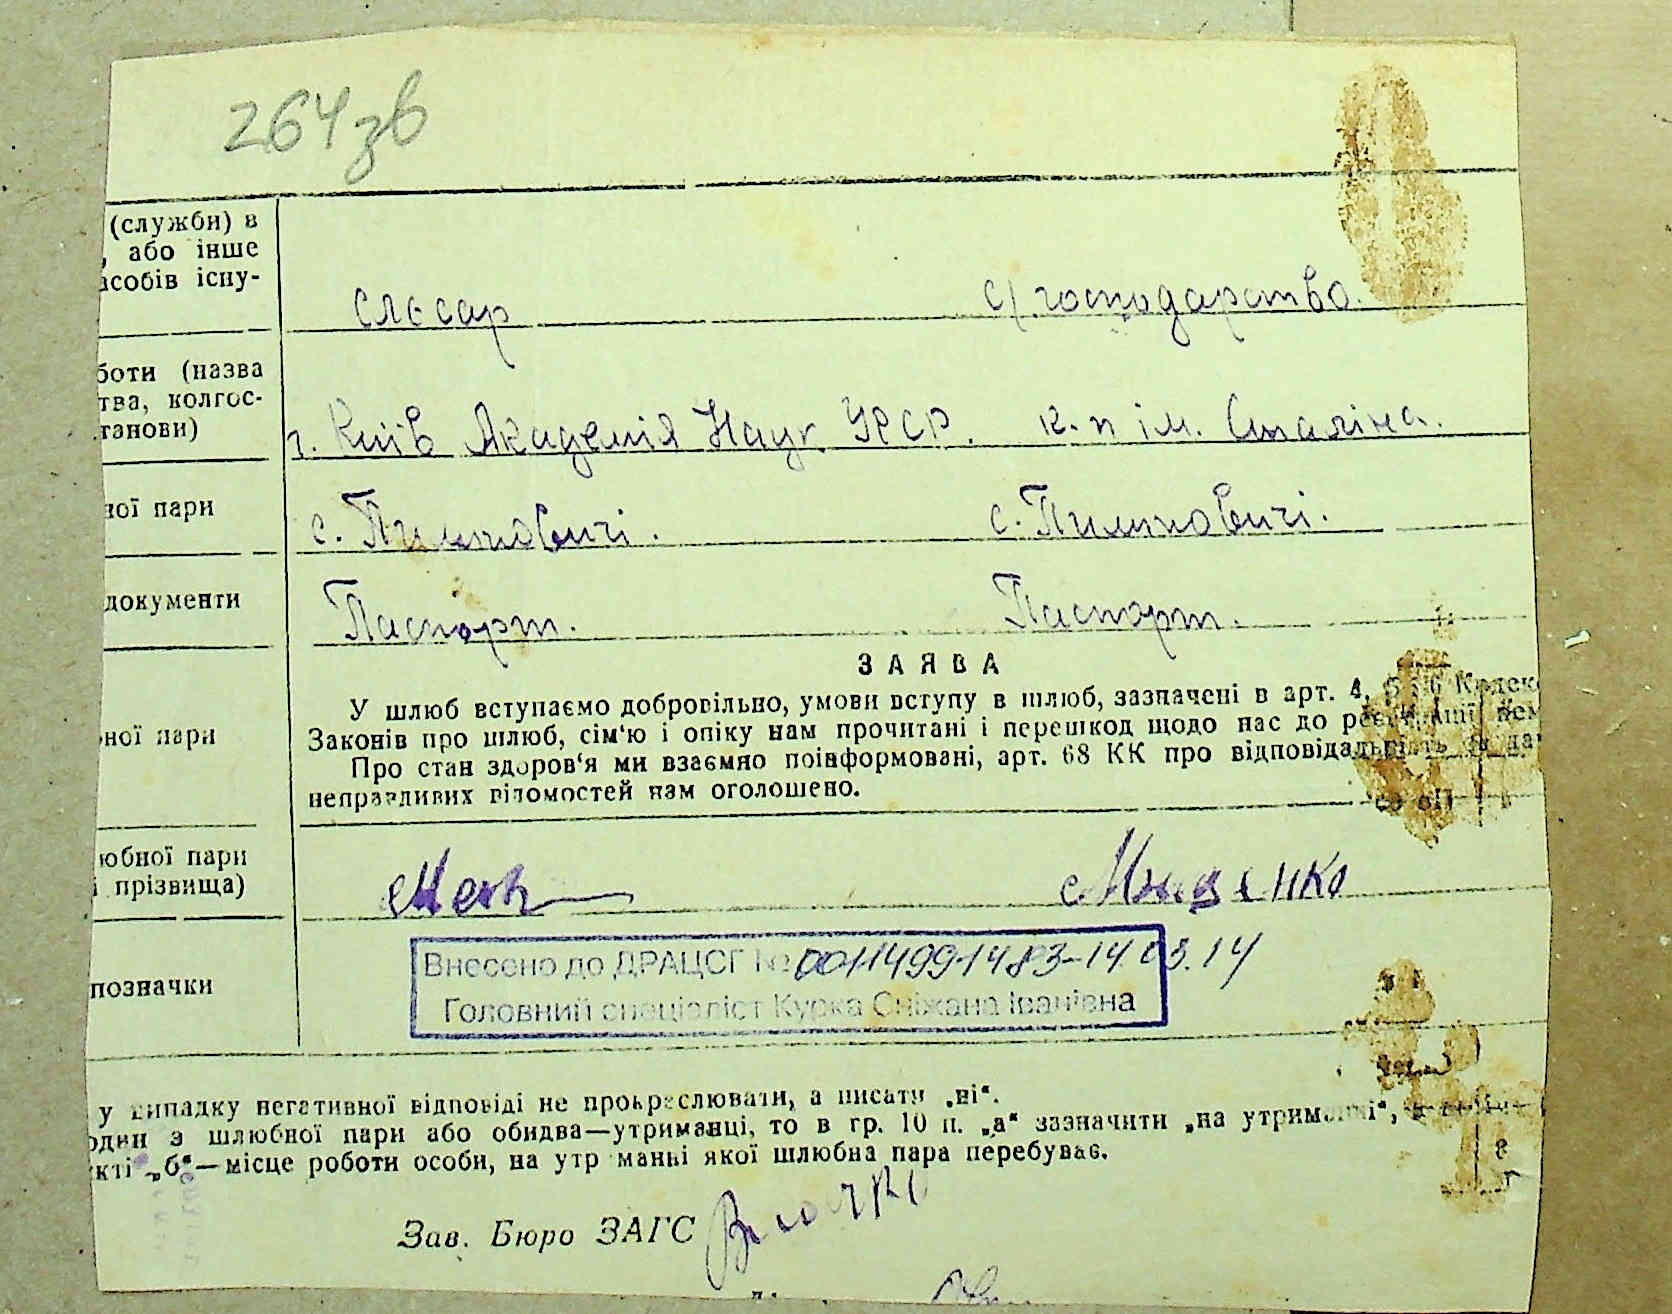 264зв
(служби) в
, або інше
асобів існу-
слєсар с/господарство.
боти (назва
тва, колгос-
танови)
г. Київ Академія Наук УРСР. к-п ім. Сталіна.
ної пари
с. Пилиповичі. с. Пилиповичі.
документи
Паспорт. Паспорт.
ЗАЯВА
У шлюб вступаємо добровільно, умови вступу в шлюб, зазначені в арт. 4, 5 і 6 Кодек
Законів про шлюб, сім'ю і опіку нам прочитані і перешкод щодо нас до реєстрації нем
ної пари
Про стан здоров'я ми взаємно поінформовані, арт. 68 КК про відповідальність за на
неправдивих відомостей нам оголошено.
юбної пари
і прізвища)
Внесено до ДРАЦСГ № 00114991483-14.03.14
позначки
Головний спеціаліст Курка Сніжана Іванівна
у випадку негативної відповіді не прокреслювати, а писати „ні“.
один з шлюбної пари або обидва—утриманці, то в гр. 10 п. „а“ зазначити „на утриманні“,
кті „б“—місце роботи особи, на утриманні якої шлюбна пара перебуває.
Зав. Бюро ЗАГС